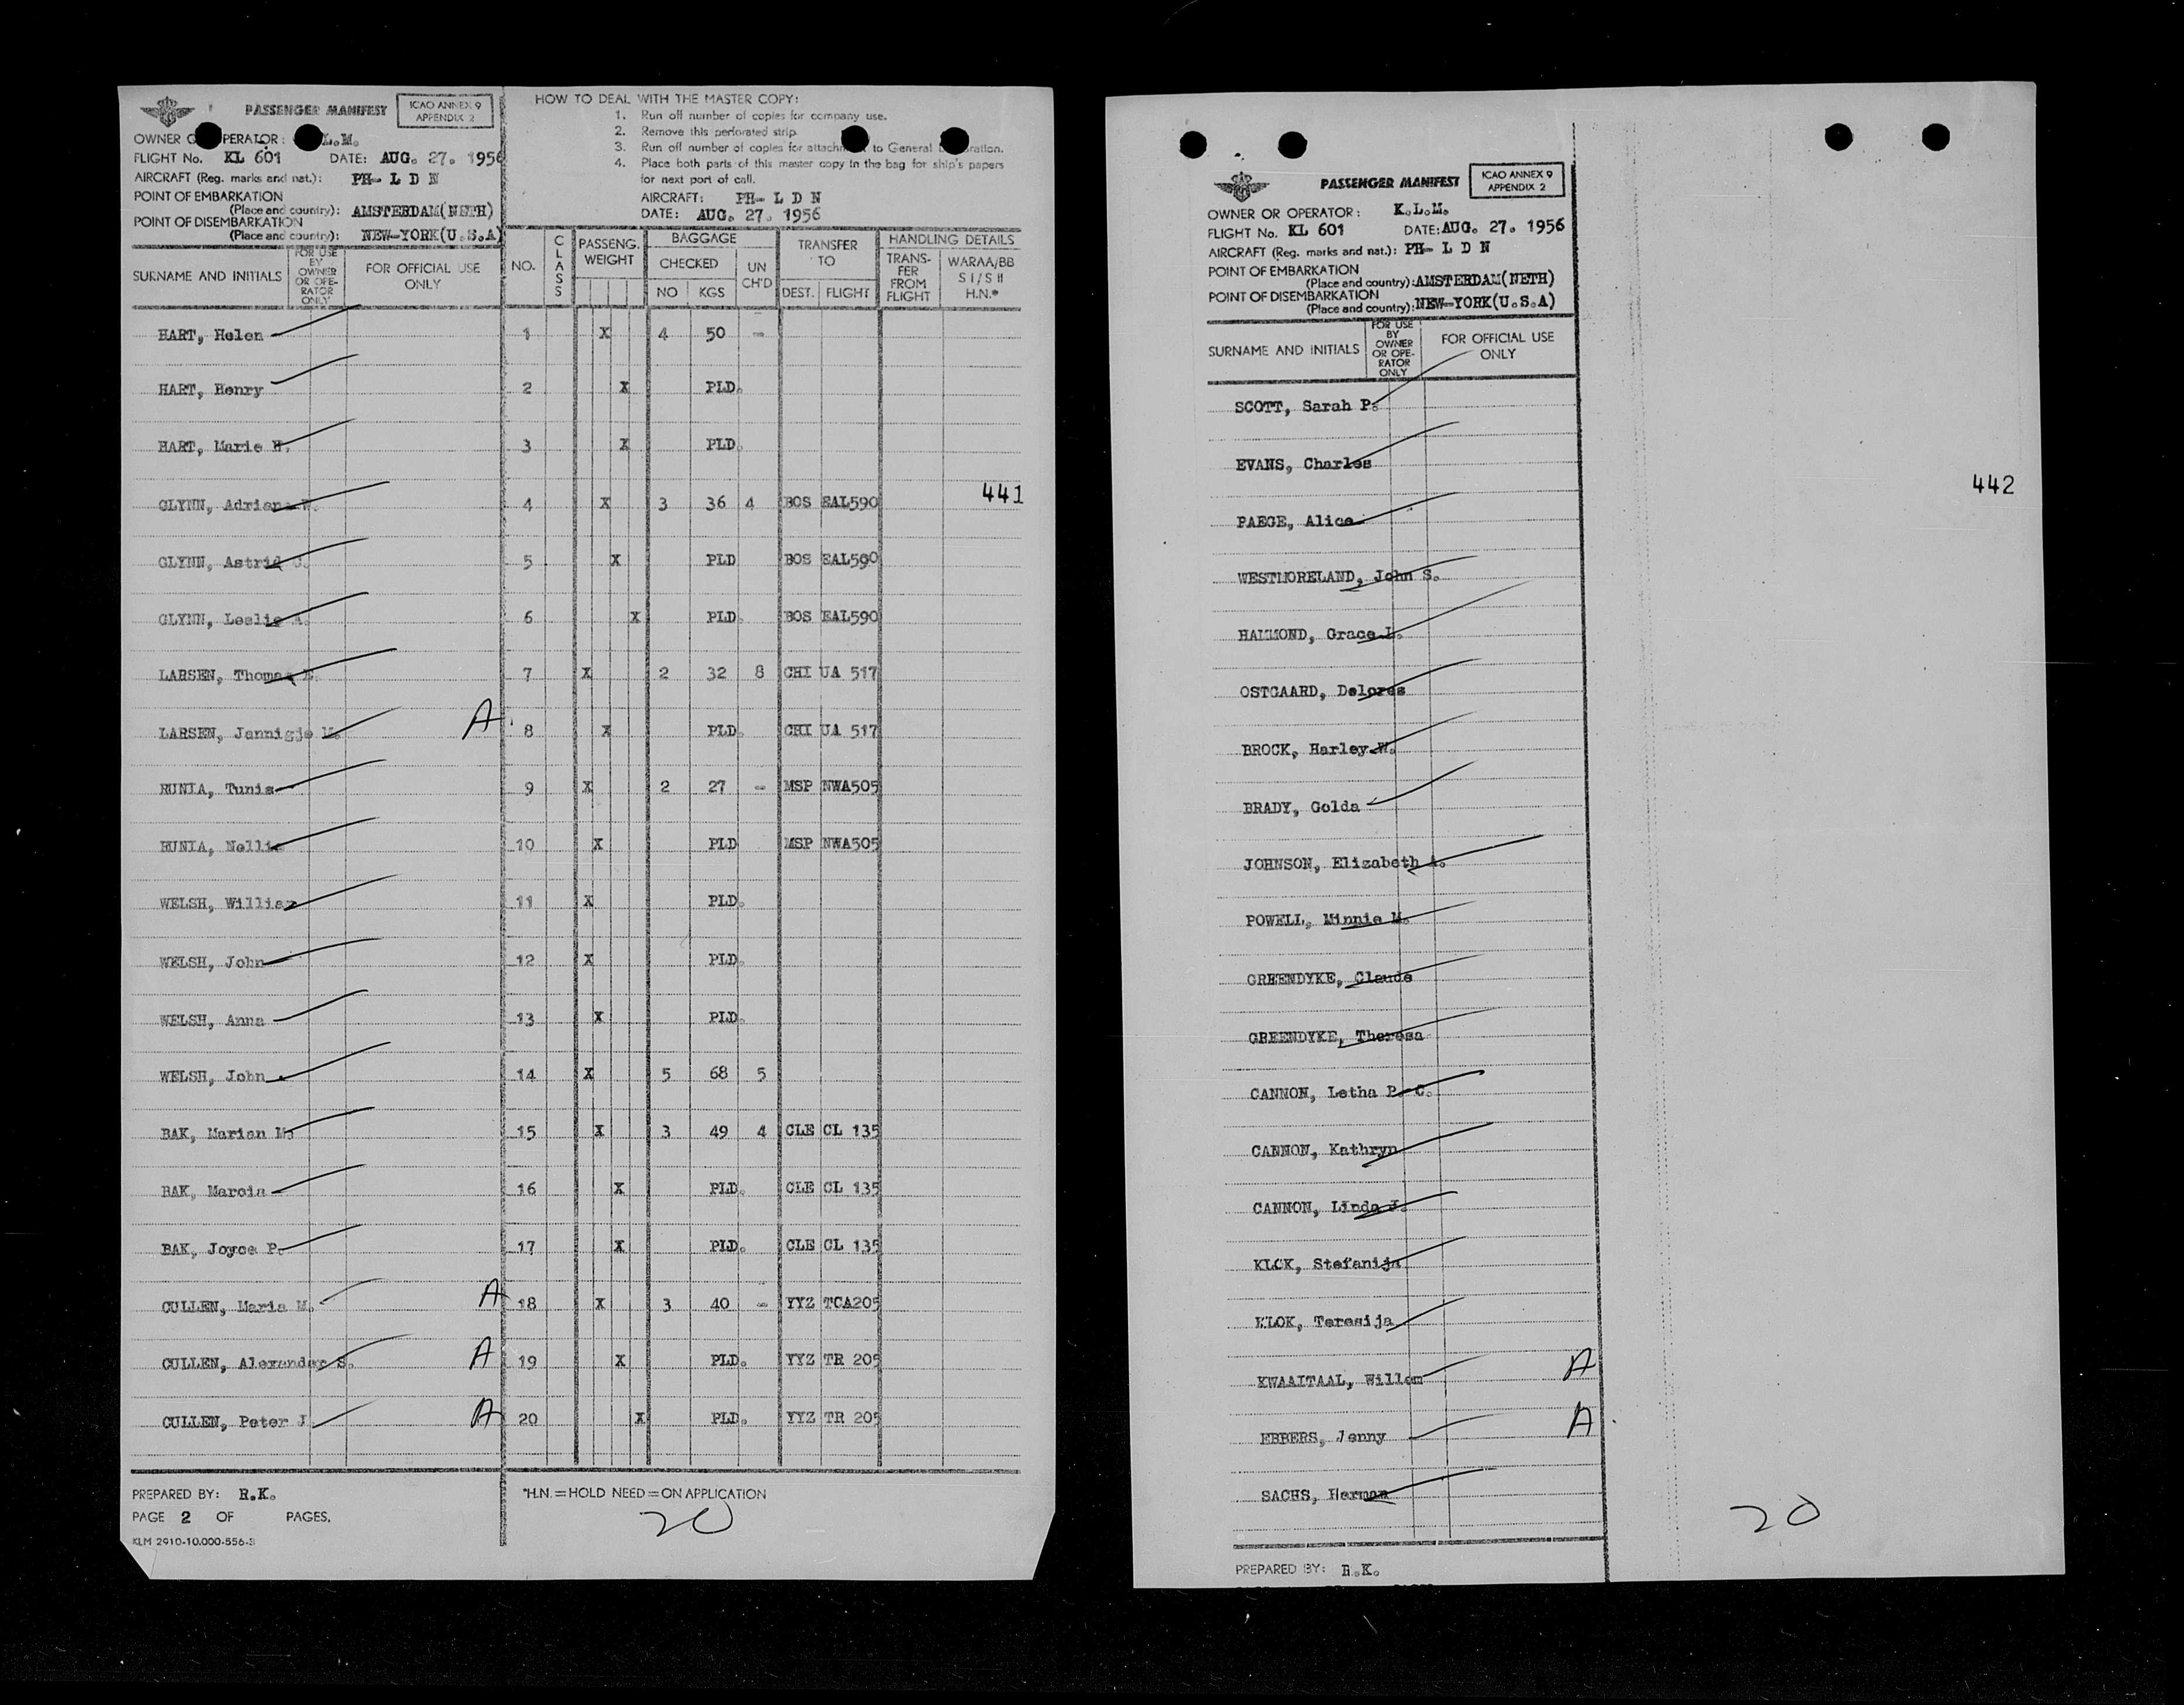 PASSENGER MANIFEST
ICAO ANNEX 9
APPENDIX 2
OWNER O PERATOR: L.M.
FLIGHT No. KL 601 DATE: AUG. 27. 1956
AIRCRAFT (Reg. marks and nat.): PH- L D N
POINT OF EMBARKATION
(Place and country): AMSTERDAM(NETH)
POINT OF DISEMBARKATION
(Place and country): NEW-YORK(U.S.A)
HOW TO DEAL WITH THE MASTER COPY:
1. Run off number of copies for company use.
2. Remove this perforated strip.
3. Run off number of copies for attachm to General ration.
4. Place both parts of this master copy in the bag for ship's papers
for next port of call.
AIRCRAFT: PH- L D N
DATE: AUG. 27. 1956
SURNAME AND INITIALS
FOR USE BY OWNER OR OPE-RATOR ONLY
FOR OFFICIAL USE ONLY
NO. CLASS PASSENG. WEIGHT BAGGAGE CHECKED NO KGS UN CH'D TRANSFER TO DEST. FLIGHT HANDLING DETAILS TRANS-FER FROM FLIGHT WARAA/BB S I / S II H.N.*
HART, Helen 1 X 4 50 -
HART, Henry 2 X PLD.
HART, Marie H. 3 X PLD.
441
GLYNN, Adriana 4 X 3 36 4 BOS EAL590
GLYNN, Astrid C. 5 X PLD BOS EAL590
GLYNN, Leslie A. 6 X PLD. BOS EAL590
LARSEN, Thomas E. 7 X 2 32 8 CHI UA 517
LARSEN, Jannigje M. A 8 X PLD. CHI UA 517
RUNIA, Tunis 9 X 2 27 - MSP NWA505
RUNIA, Nellie 10 X PLD MSP NWA505
WELSH, William 11 X PLD.
WELSH, John 12 X PLD.
WELSH, Anna 13 X PLD.
WELSH, John 14 X 5 68 5
BAK, Marion M. 15 X 3 49 4 CLE CL 135
BAK, Marcia 16 X PLD. CLE CL 135
BAK, Joyce P. 17 X PLD. CLE CL 135
CULLEN, Maria M. A 18 X 3 40 - YYZ TCA205
CULLEN, Alexander S. A 19 X PLD. YYZ TR 205
CULLEN, Peter J. A 20 X PLD. YYZ TR 205
PREPARED BY: R.K.
*H.N. = HOLD NEED = ON APPLICATION
20
PAGE 2 OF PAGES.
KLM 2910-10.000-556-S
PASSENGER MANIFEST
ICAO ANNEX 9
APPENDIX 2
OWNER OR OPERATOR: K.L.M.
FLIGHT No. KL 601 DATE: AUG. 27. 1956
AIRCRAFT (Reg. marks and nat.): PH- L D N
POINT OF EMBARKATION
(Place and country): AMSTERDAM(NETH)
POINT OF DISEMBARKATION
(Place and country): NEW-YORK(U.S.A)
SURNAME AND INITIALS
FOR USE BY OWNER OR OPE-RATOR ONLY
FOR OFFICIAL USE ONLY
SCOTT, Sarah P.
EVANS, Charles
442
PAEGE, Alice
WESTMORELAND, John S.
HAMMOND, Grace L.
OSTGAARD, Delores
BROCK, Harley W.
BRADY, Golda
JOHNSON, Elizabeth A.
POWELL, Minnie M.
GREENDYKE, Claude
GREENDYKE, Theresa
CANNON, Letha P. C.
CANNON, Kathryn
CANNON, Linda J.
KLOK, Stefanija
KLOK, Teresija
KWAAITAAL, Willem A
EBBERS, Jenny A
SACHS, Herman
20
PREPARED BY: R.K.